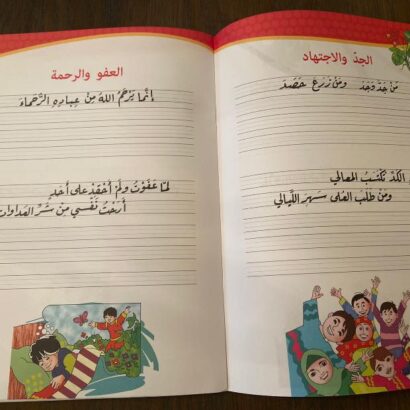 الجدّ والاجتهاد
مَنْ جَدَّ وَجَدَ وَمَنْ زَرَعَ حَصَدَ
الكَدِّ تُكْتَسَبُ المَعالي
وَمَنْ طَلَبَ العُلى سَهِرَ اللَّيالي
العفو والرحمة
إنَّما يَرْحَمُ اللهُ مِنْ عِبادِهِ الرُّحَماءَ
لمّا عَفَوْتُ وَلَمْ أَحْقِدْ عَلى أَحَدٍ
أَرَحْتُ نَفْسي مِنْ شَرِّ العَداواتِ